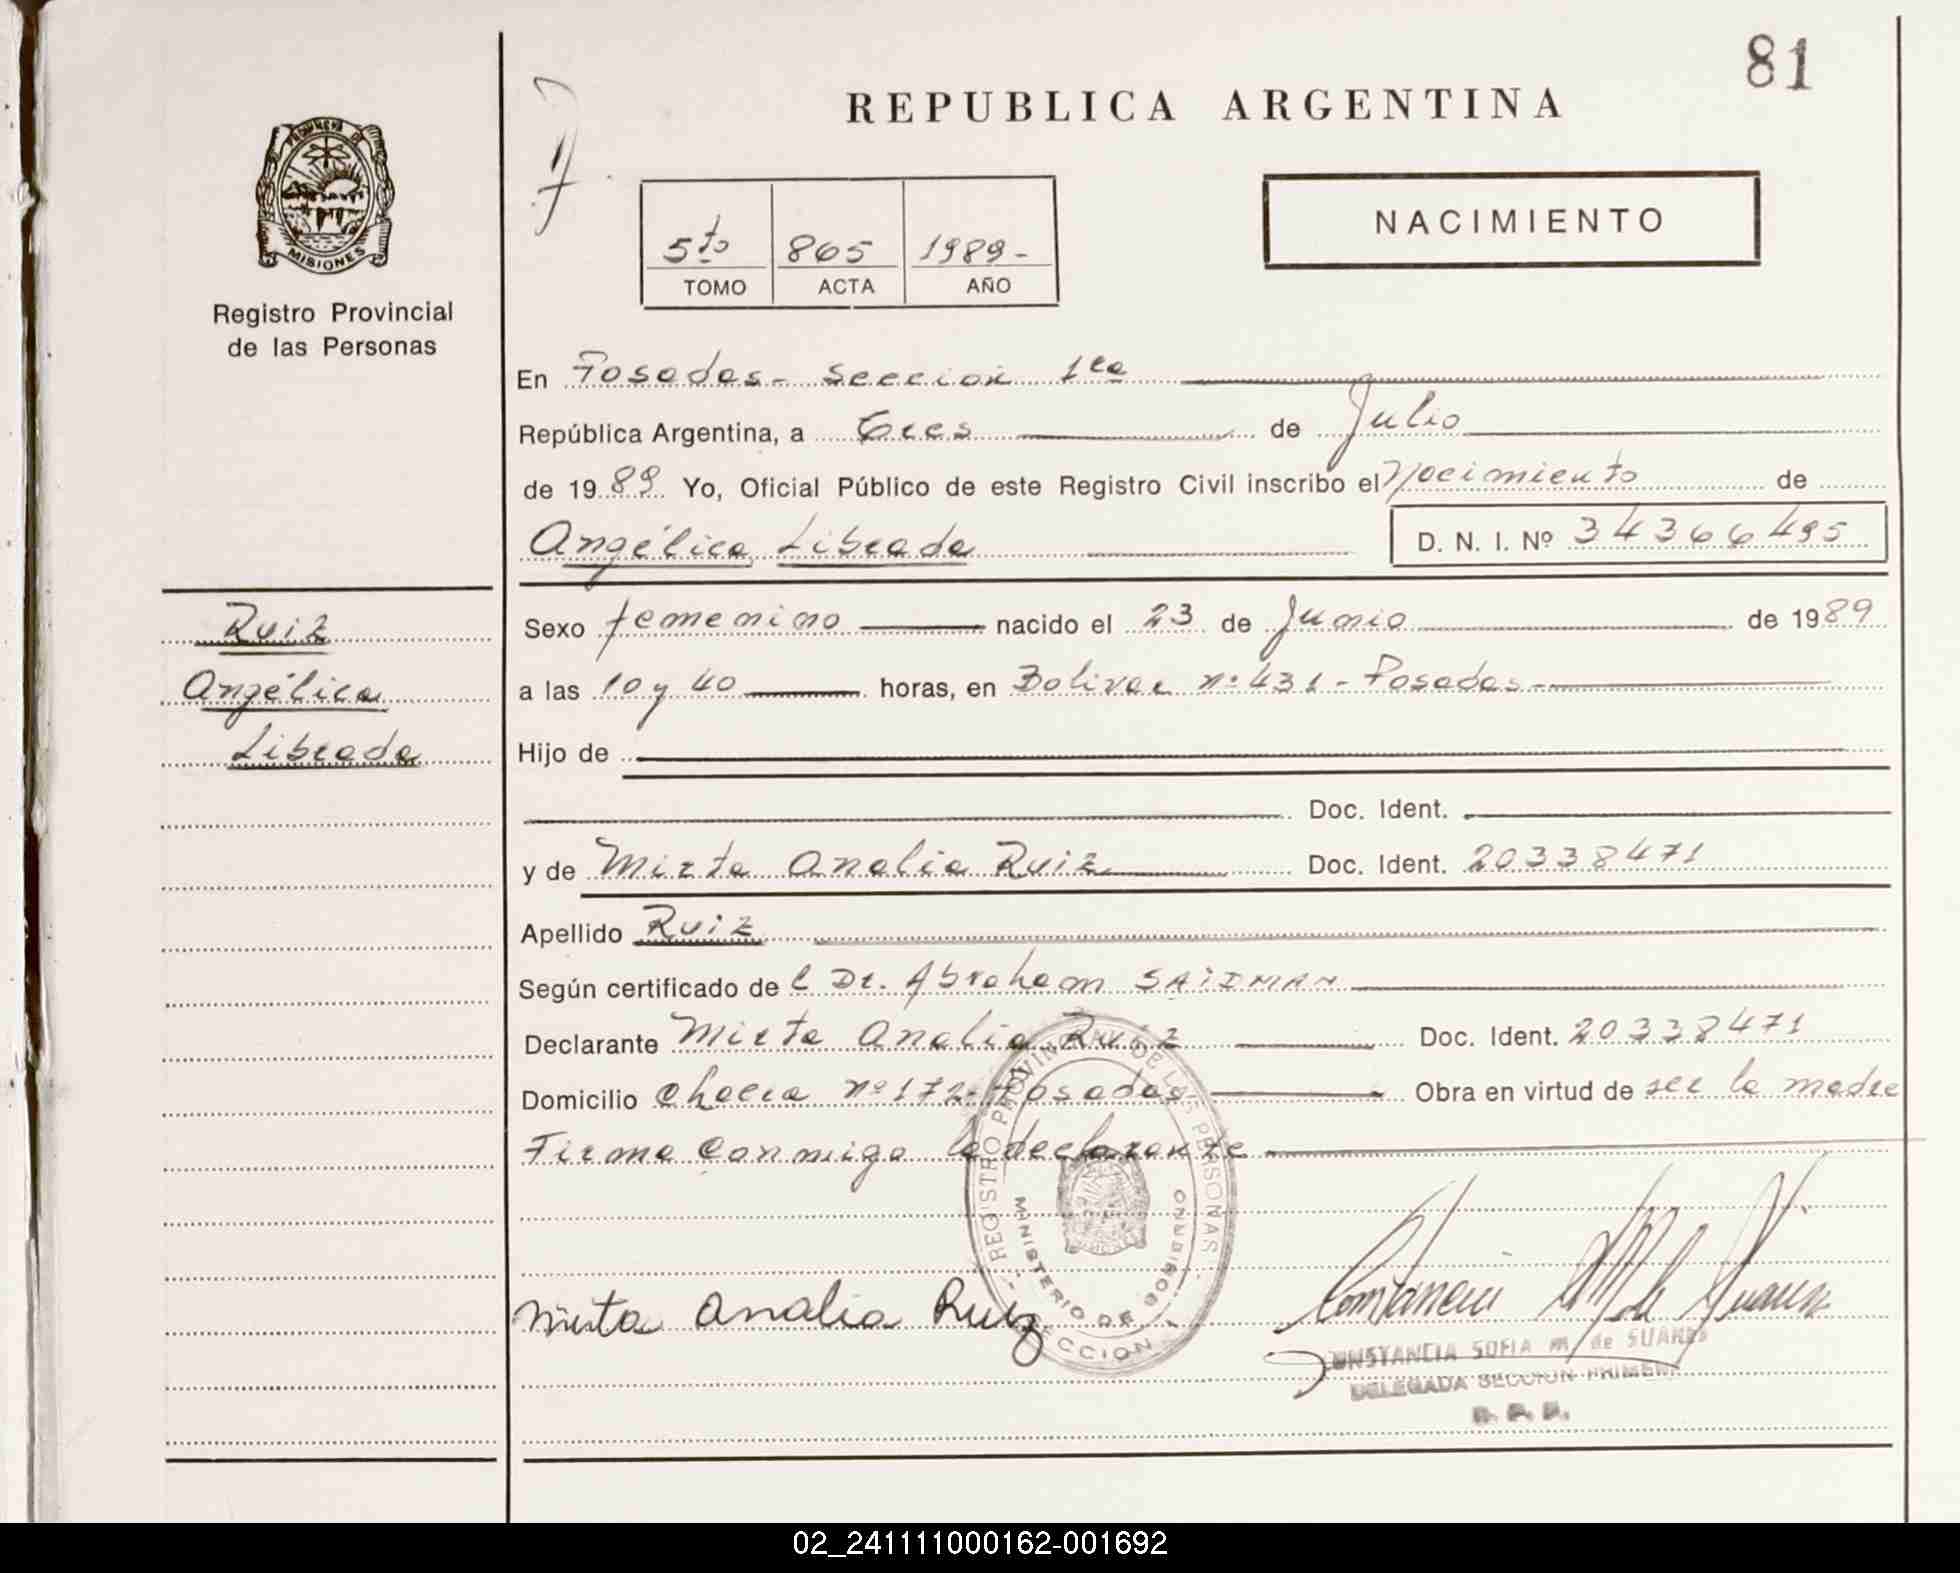 81
REPUBLICA ARGENTINA
NACIMIENTO
5to 865 1989-
TOMO ACTA AÑO
PROVINCIA DE
MISIONES
Registro Provincial
de las Personas
En Posadas- Sección 1ra
República Argentina, a tres de Julio
de 1989 Yo, Oficial Público de este Registro Civil inscribo el Nacimiento de
Angélica Librada D. N. I. Nº 34366495
Ruiz
Angélica
Librada
Sexo femenino nacido el 23 de Junio de 1989
a las 10 y 40 horas, en Bolivar nº 431 - Posadas-
Hijo de
Doc. Ident.
y de Mirta Analia Ruiz Doc. Ident. 20338471
Apellido Ruiz
Según certificado de l Dr. Abraham SAIDMAN
Declarante Mirta Analia Ruiz Doc. Ident. 20338471
Domicilio Chacra nº 172- Posadas Obra en virtud de ser la madre
Firma conmigo la declarante
REGISTRO PROVINCIAL DE LAS PERSONAS
MINISTERIO DE GOBIERNO
SECCION 1
Mirta Analia Ruiz
CONSTANCIA SOFIA M. de SUAREZ
DELEGADA SECCION PRIMERA
R. P. P.
02_241111000162-001692